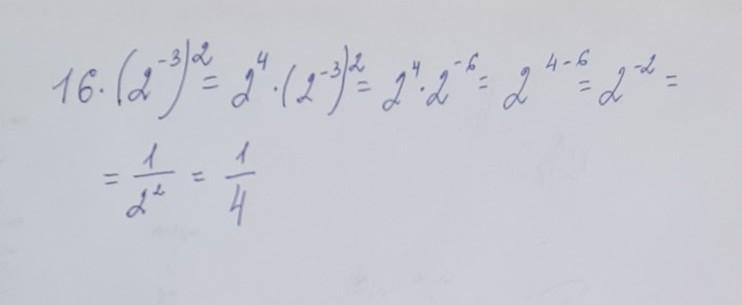 16·(2⁻³)² = 2⁴·(2⁻³)² = 2⁴·2⁻⁶ = 2⁴⁻⁶ = 2⁻² =
= 1/2² = 1/4